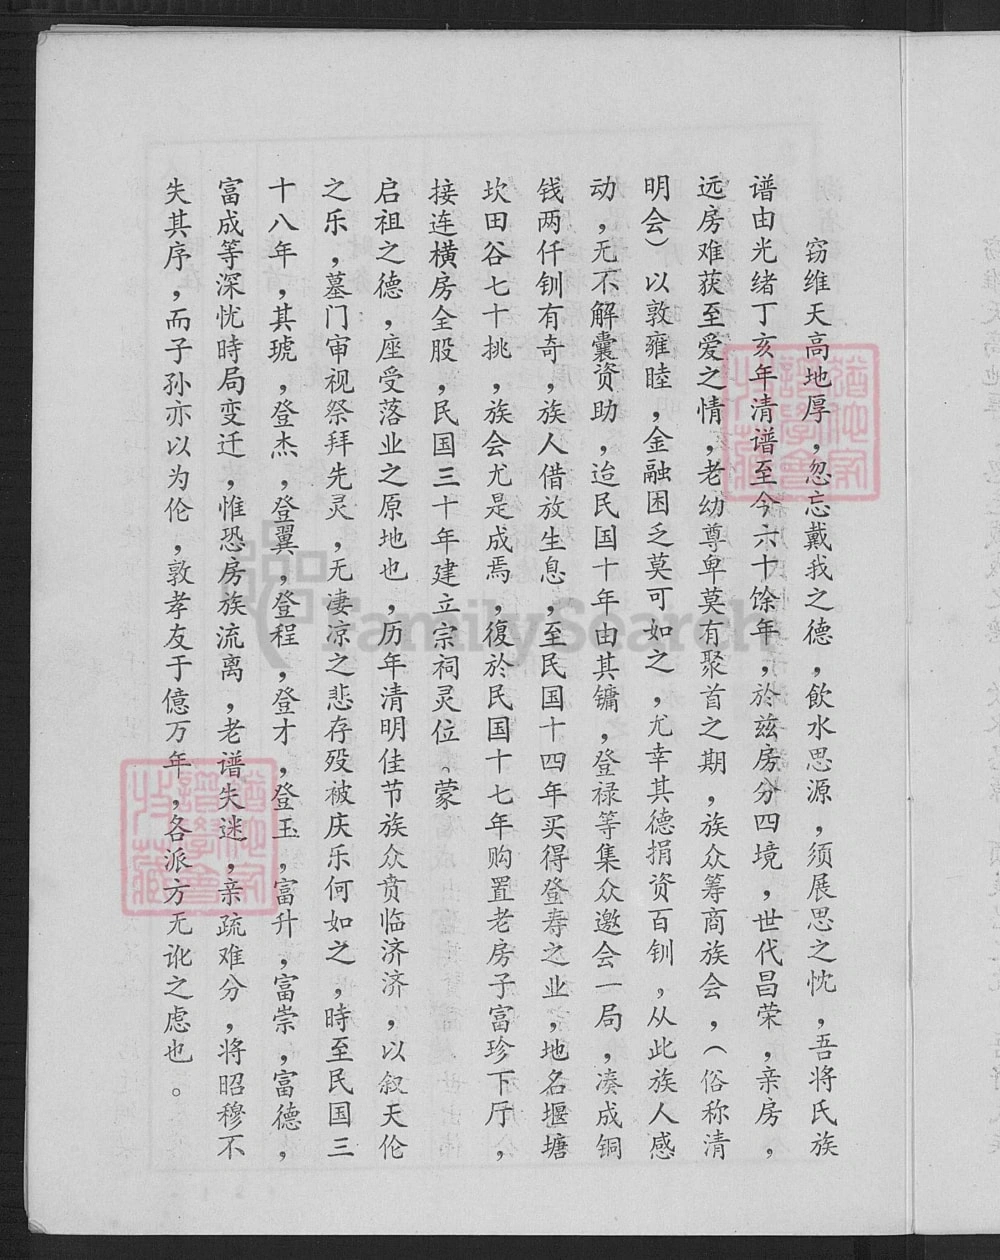 窃维天高地厚，忽忘戴我之德，飲水思源，须展思之忱，吾将氏族
谱由光绪丁亥年清谱至今六十馀年，於兹房分四境，世代昌荣，亲房，
远房难获至爱之情，老幼尊卑莫有聚首之期，族众筹商族会，（俗称清
明会）以敦雍睦，金融困乏莫可如之，尤幸其德捐资百钏，从此族人感
动，无不解囊资助，迨民国十年由其镛，登禄等集众邀会一局，凑成铜
钱两仟钏有奇，族人借放生息，至民国十四年买得登寿之业，地名堰塘
坎田谷七十挑，族会尤是成焉，復於民国十七年购置老房子富珍下厅，
接连横房全股，民国三十年建立宗祠灵位。蒙
启祖之德，座受落业之原地也，历年清明佳节族众贲临济济，以叙天伦
之乐，墓门审视祭拜先灵，无凄凉之悲存殁被庆乐何如之，時至民国三
十八年，其琥，登杰，登翼，登程，登才，登玉，富升，富崇，富德，
富成等深忧時局变迁，惟恐房族流离，老谱失迷，亲疏难分，将昭穆不
失其序，而子孙亦以为伦，敦孝友于億万年，各派方无讹之虑也。
FamilySearch